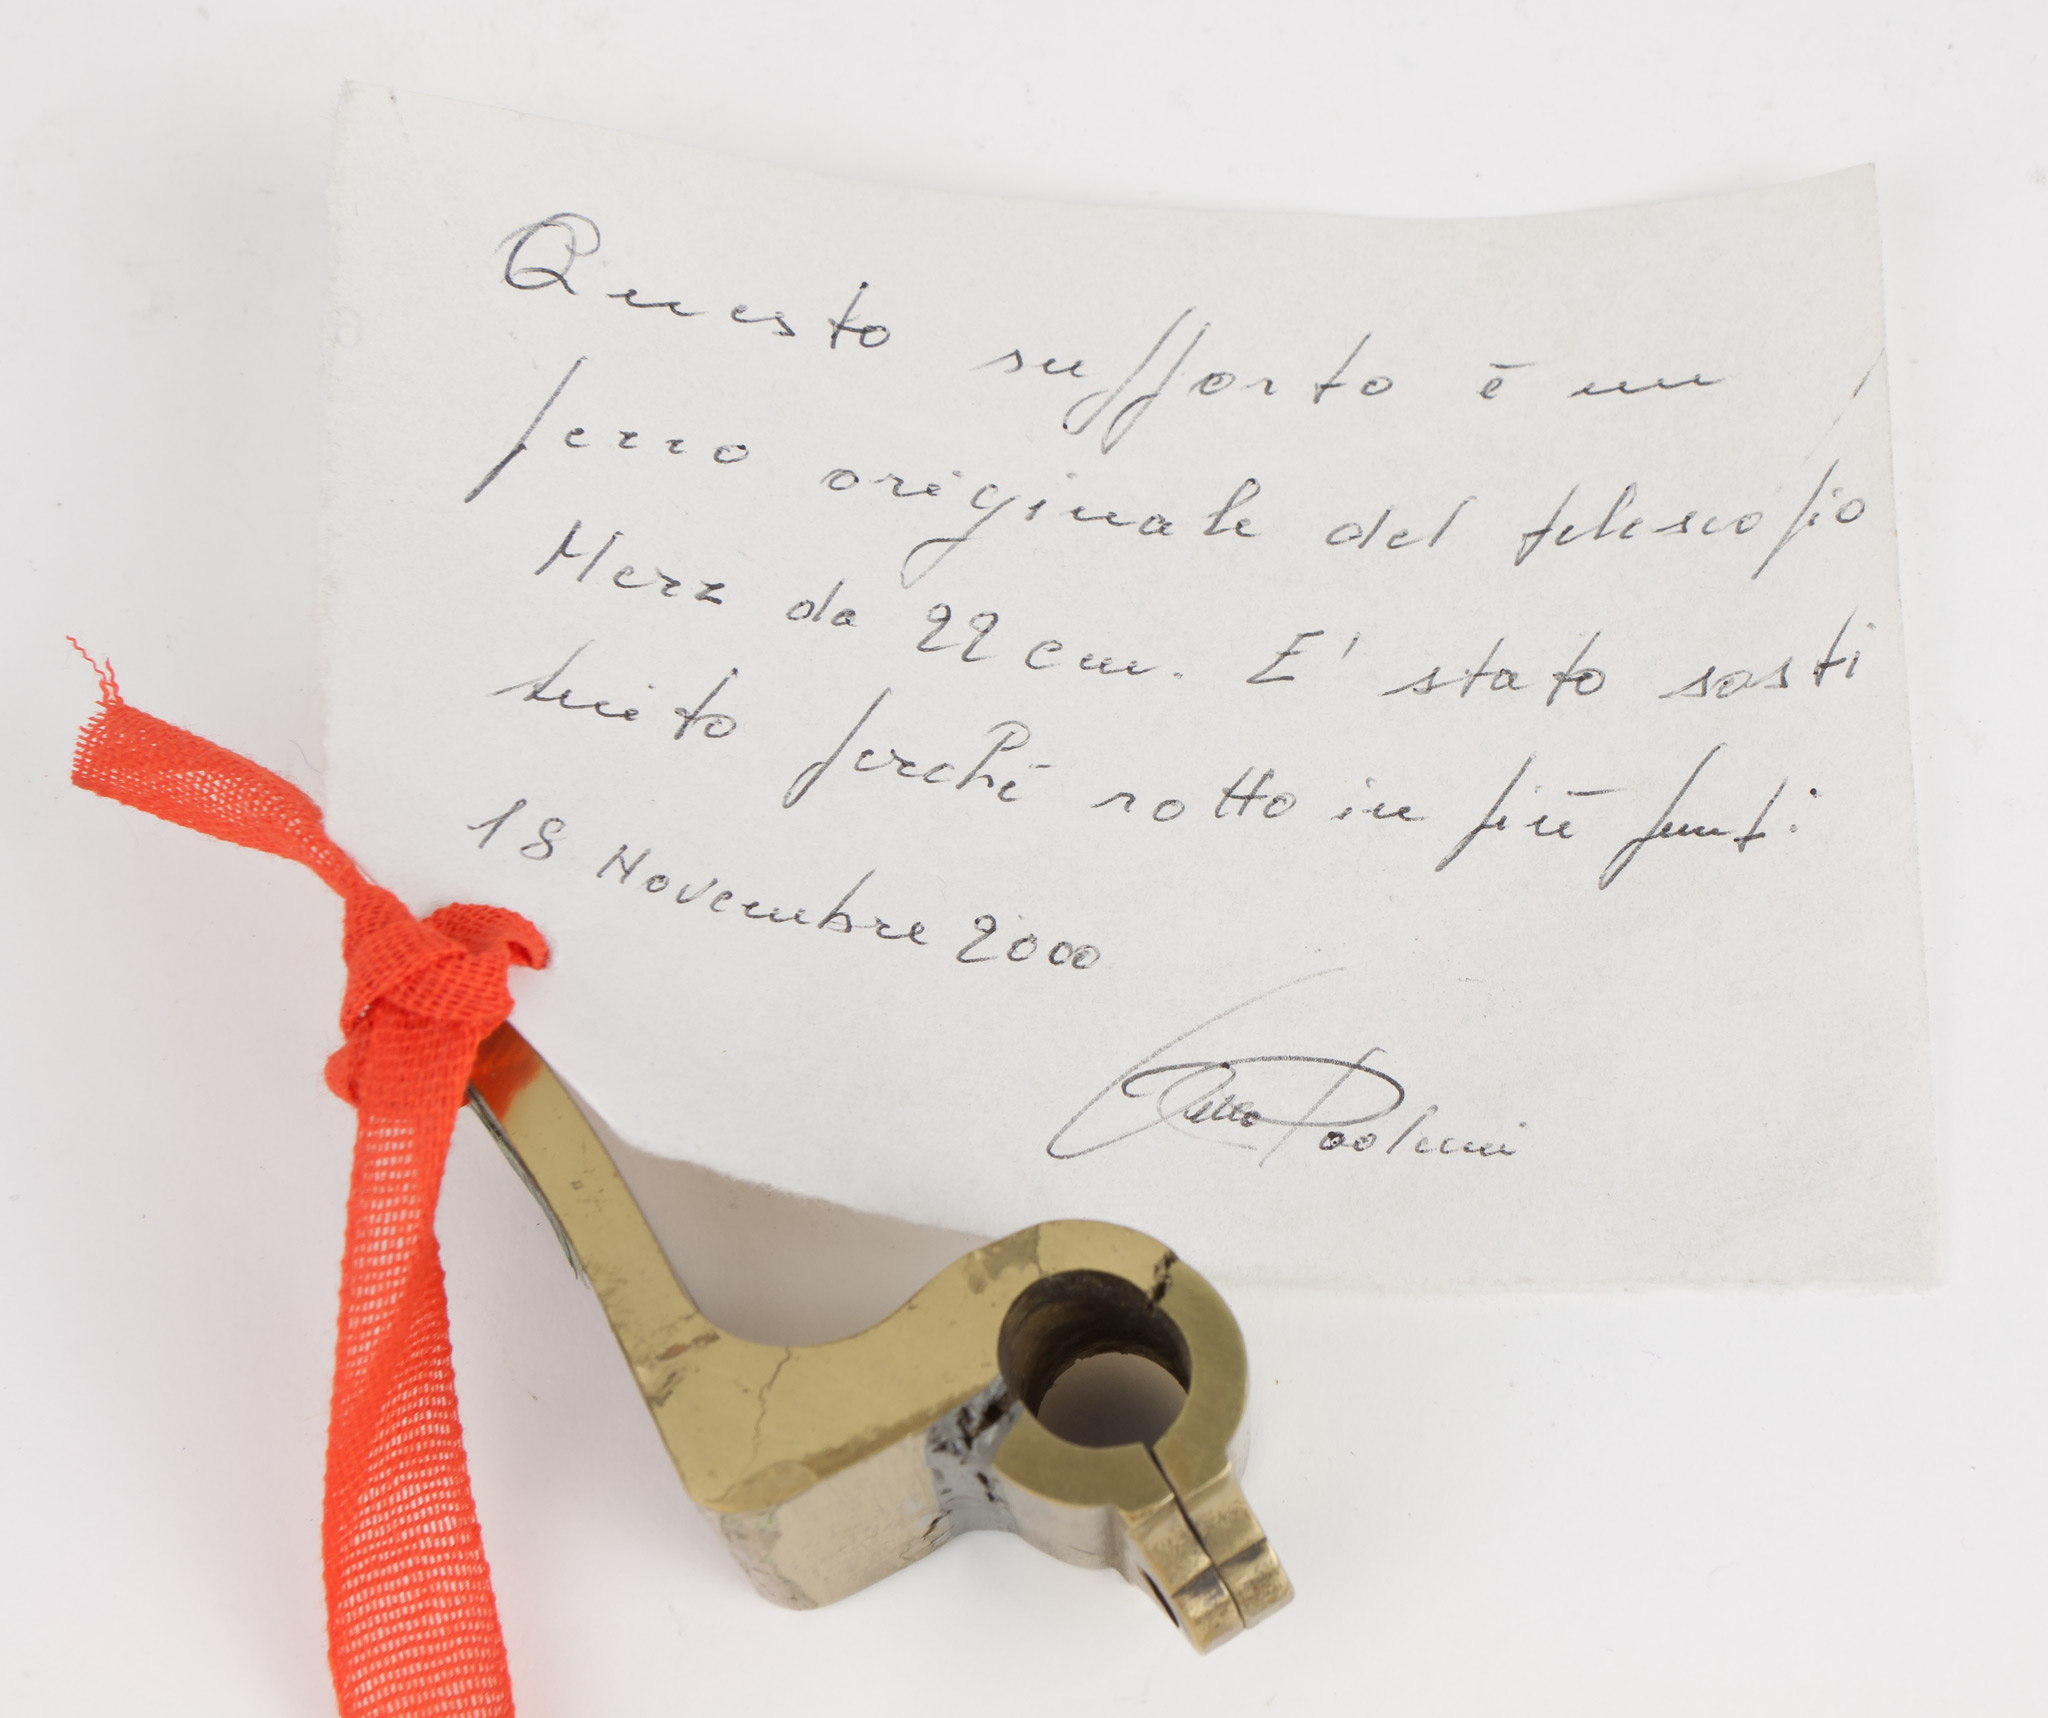 Questo supporto è un
pezzo originale del telescopio
Merz da 22 cm. E' stato sosti
tuito perché rotto in più punti
18 Novembre 2000